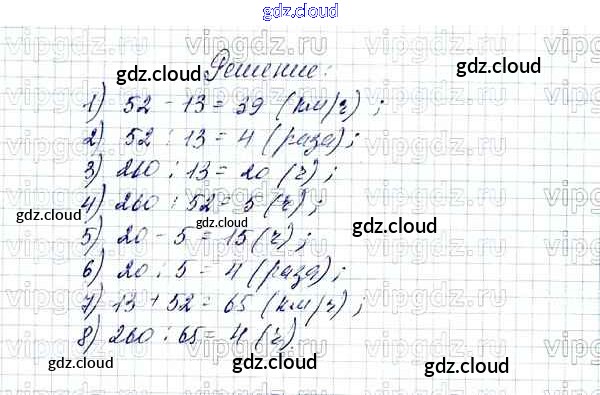 gdz.cloud
Решение:
1) 52 - 13 = 39 (км/ч);
2) 52 : 13 = 4 (раза);
3) 260 : 13 = 20 (ч);
4) 260 : 52 = 5 (ч);
5) 20 - 5 = 15 (ч);
6) 20 : 5 = 4 (раза);
7) 13 + 52 = 65 (км/ч);
8) 260 : 65 = 4 (ч)
gdz.cloud
gdz.cloud
gdz.cloud
gdz.cloud
gdz.cloud
gdz.cloud
gdz.cloud
gdz.cloud
gdz.cloud
vipgdz.ru
vipgdz.ru
vipgdz.ru